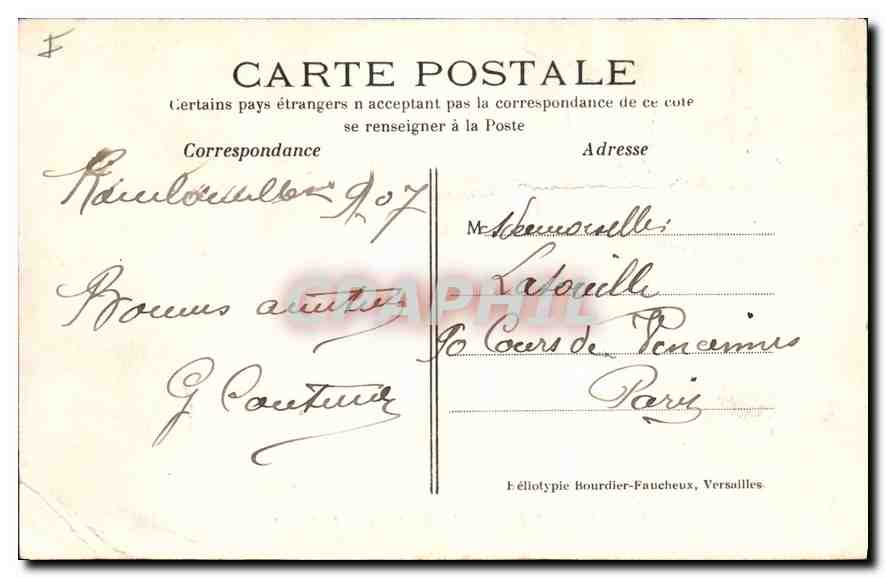 CARTE POSTALE
Certains pays étrangers n acceptant pas la correspondance de ce coté
se renseigner à la Poste
Correspondance
Adresse
907
Bonnes amitiés
G
Mesdemoiselles
Latouille
90 Cours de Vincennes
Paris
CPAPHIL
Héliotypie Bourdier-Faucheux, Versailles